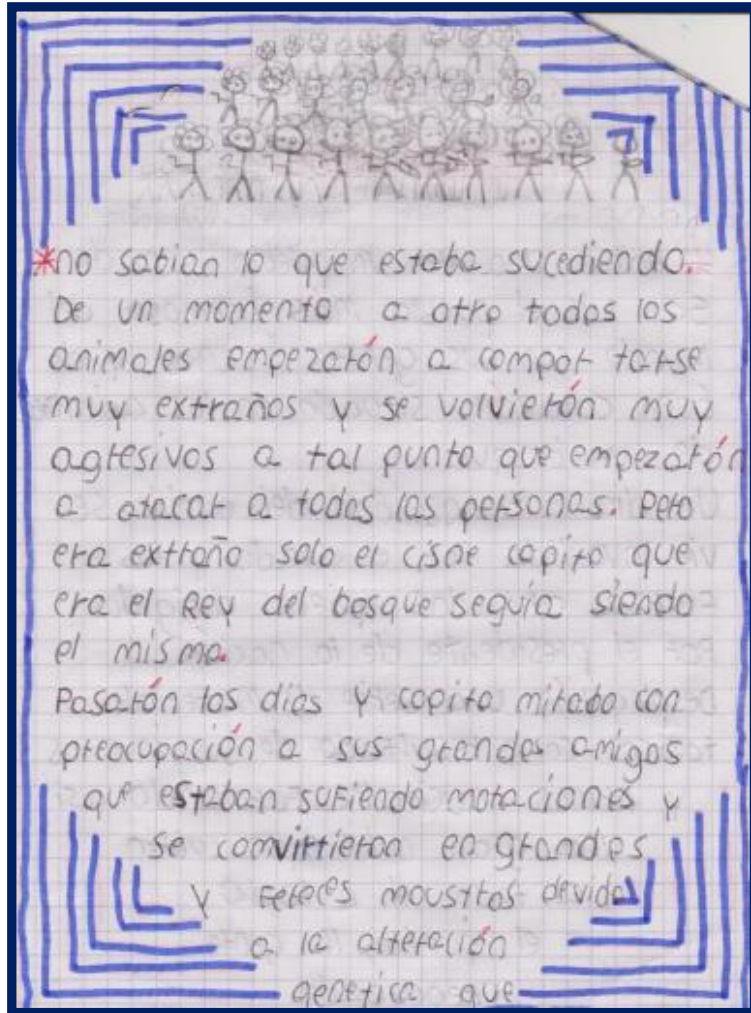 *no sabian lo que estaba sucediendo.
De un momento a otro todos los
animales empezarón a compor tarse
muy extraños y se volvierón muy
agresivos a tal punto que empezarón
a atacar a todas las personas. Pero
era extraño solo el cisne copito que
era el Rey del bosque seguia siendo
el mismo.
Pasarón los dias y copito miraba con
preocupación a sus grandes amigos
que estaban sufiendo motaciones y
se comvirtieron en grandes
y fereces moustros devido
a la alteración
genetica que